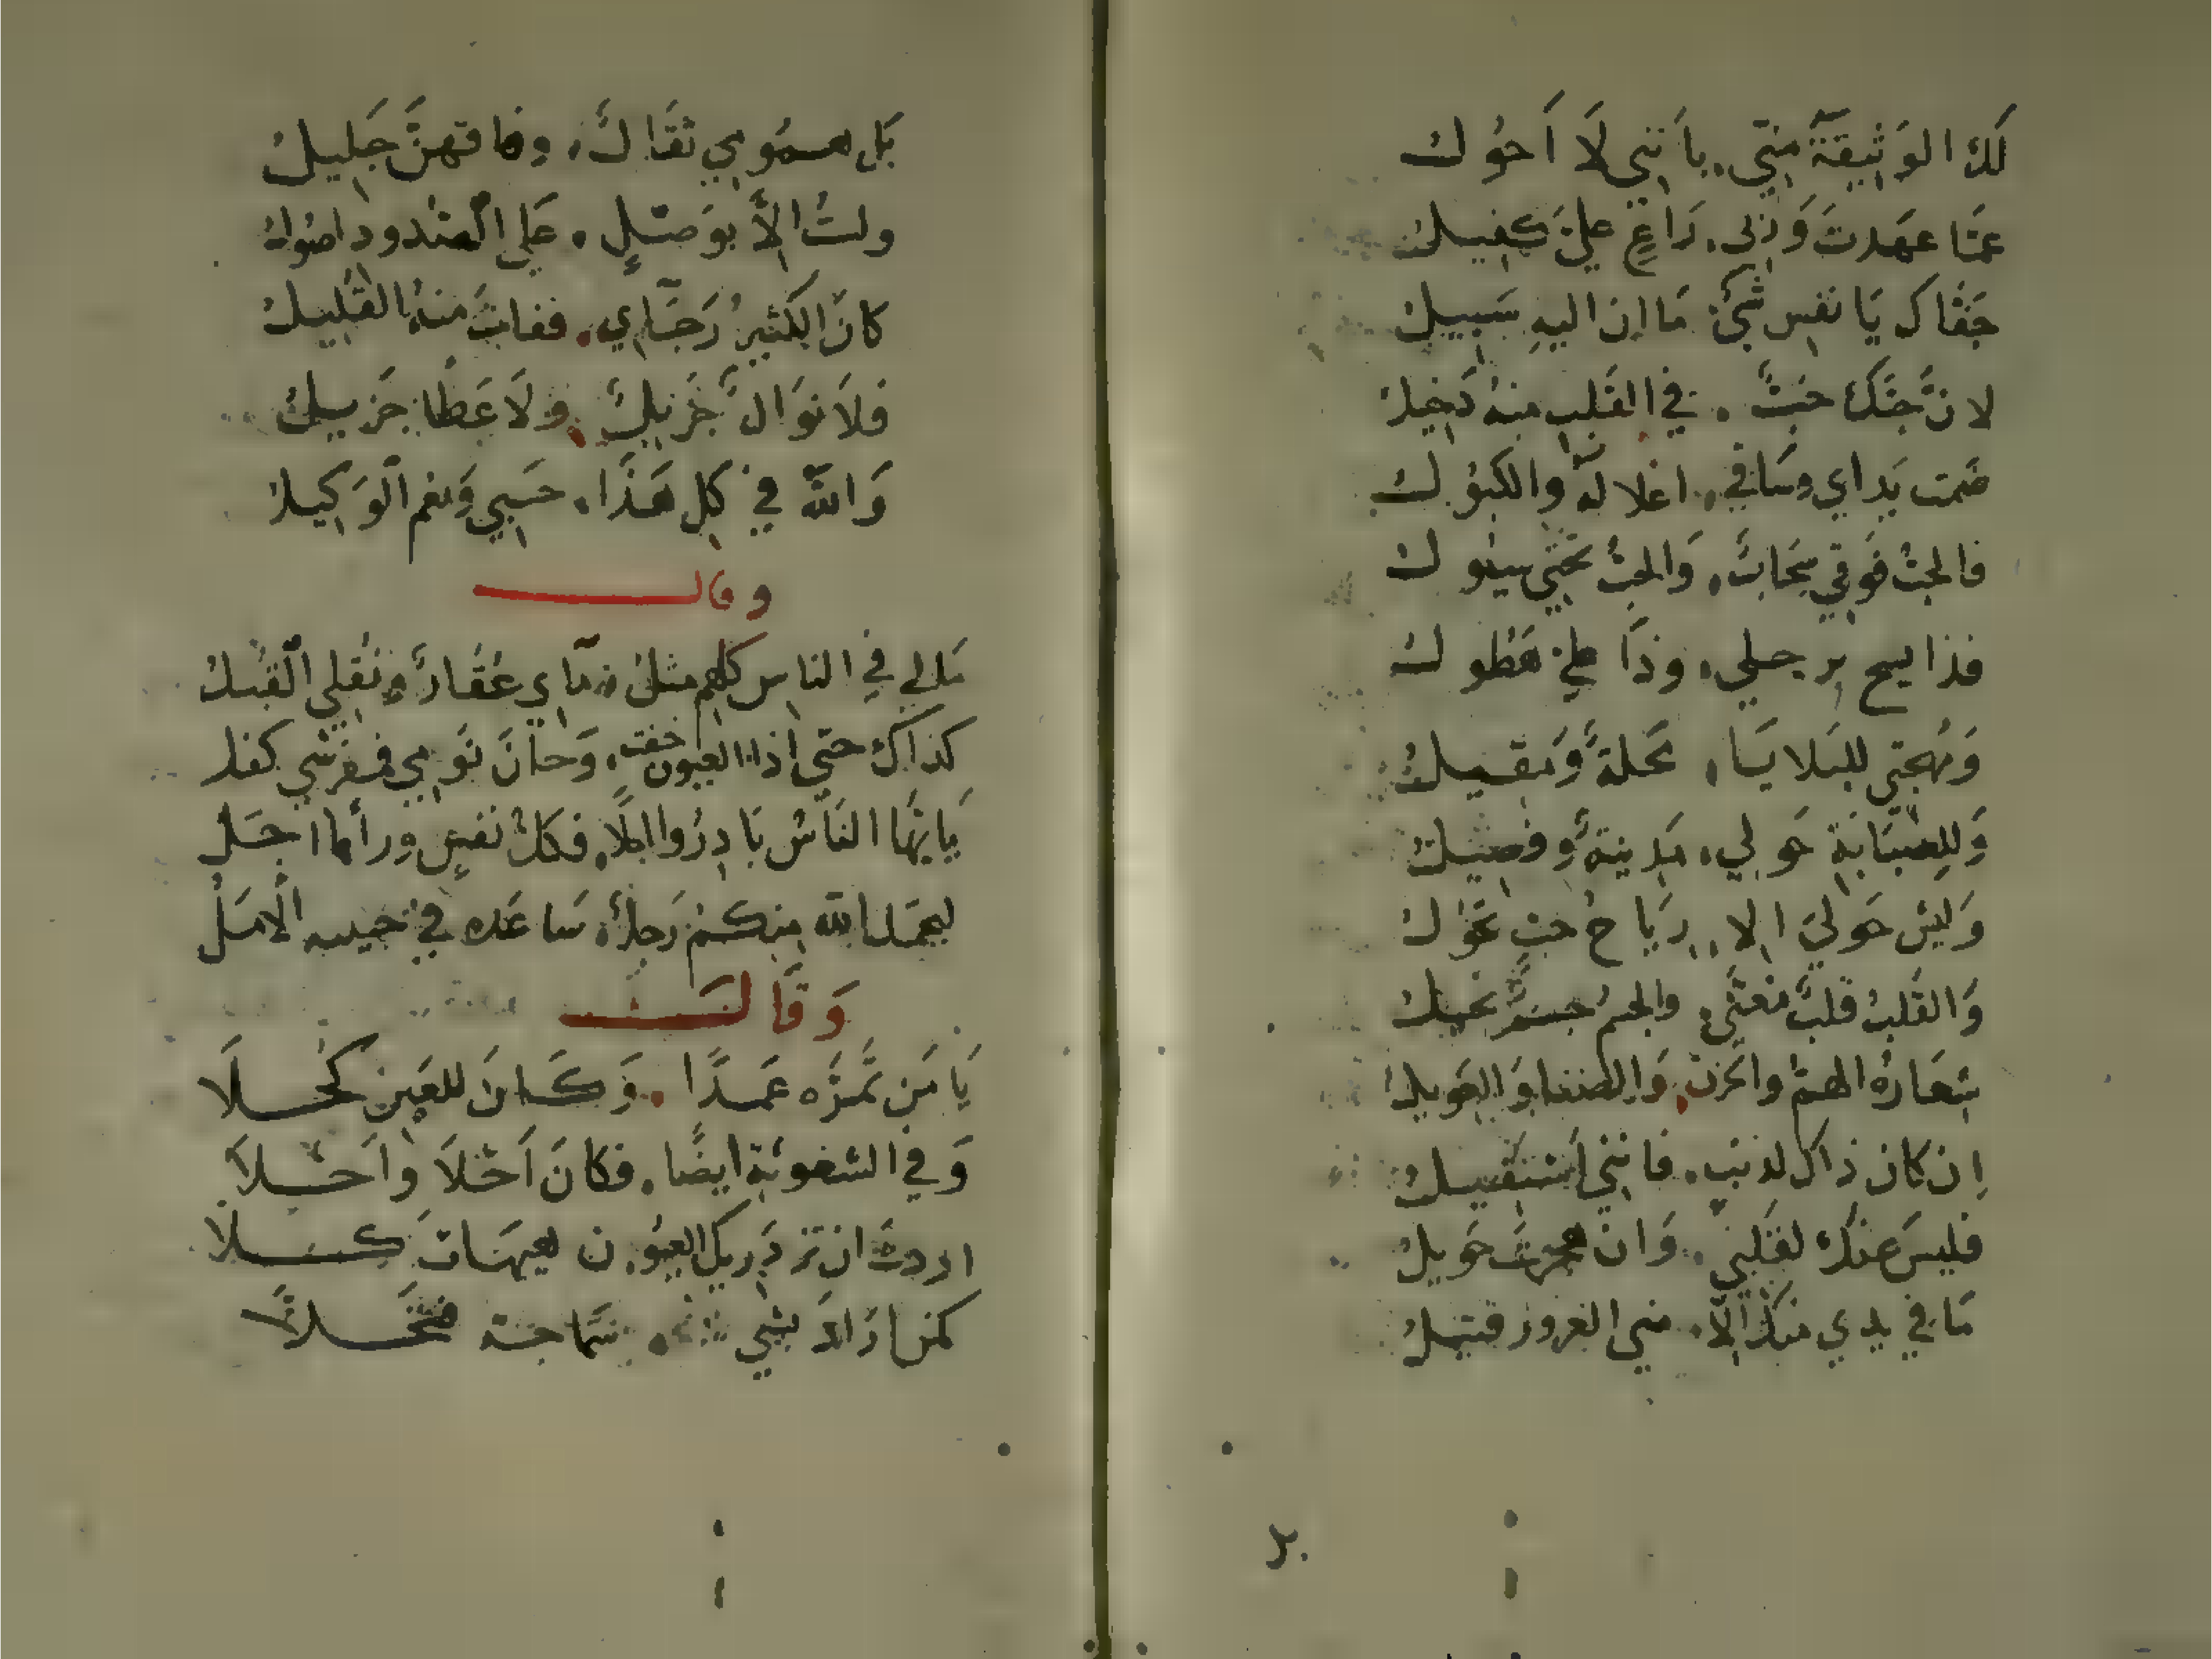 لَكَ الوَثِيقَةُ مِنّي . بِأَنَّني لَا اَحُوْلُ
عَمّا عَهَدتَ وَ . رَاعٍ عَلَيَّ كَفِيلُ
جَفَاكَ يَا نَفسِ شَيْءٌ مَا اِن اليهِ سَبِيلُ
لانَّ حُبَّكَ حُبٌّ . في القَلبِ منهُ دَخِيلُ
ضمت يَدَاي وسَاقي . اغلاله والكبُوْلُ
فالحبُّ فَوقي سَحَابٌ . وَالحبُّ تحتي سيُولُ
فذا يسح برجلي . وذَا عليَّ هَطُولُ
وَمُهجَتي للبَلايَا . مَحلةٌ وَمَقيلُ
وَلِلصَّبَابَةِ حَولي . مَدِينةٌ وفصِيلُ
وَلَيسَ حَوليَ الا . رِيَاحُ حُبٍّ تَجُولُ
وَالقَلبُ قَلبٌ مُعَنّى . والجسمُ جِسمٌ نَحِيلُ
شِعَارُهُ الهمُّ والحزنُ . وَالضنا وَالعَوِيلُ
اِن كان ذاكَ لذنبٍ . فَانَّني أستقيلُ
فليسَ عنكَ لقَلبي . وَان هجرتَ حَويلُ
مَا في يدي منكَ اِلّا . منى الغرور فتيلُ
بَل همُومِي ثقَالٌ . وفاقَهنَّ جَلِيلُ
ولستُ الّا بوَصْلٍ . عَلى الصُّدودِ اصُولُ
كانَ الكَثيرُ رَجَآي . ففاتَ منهُ القَلِيلُ
فلَا نَوَالٌ جَزيلٌ . ولَا عَطَا جَزيلُ
وَالله في كلِّ هَذَا . حَسبي وَنعم الوَكيلُ
وقال
مَالي في الناسِ كلهم مثلُ مآي عُقَارٌ ونُقلي القُبَلُ
كذاك حتى اذا العيون خفت . وَحانَ نَومي ففرشي كفل
يَايُّها النَاسُ بَادِرُوا . فكلُّ نفسٍ ورأها اجَلُ
ليحمد الله منكمُ رَجلٌ . سَاعَده في حبيبه الأمَلُ
وَقَالَ
يَا مَن تمَرَّه عَمدًا . وَكَانَ للعَينِ كُحلَا
وَفي الشعُوثةِ ايضًا . فكانَ اَحْلَا وأَحْلَا
اردتَ ان تزدَرِيك العيُون هيهَات كَلَّا
كمن ارَادَ بشيء . سَمَاجَة فتحَلَّا